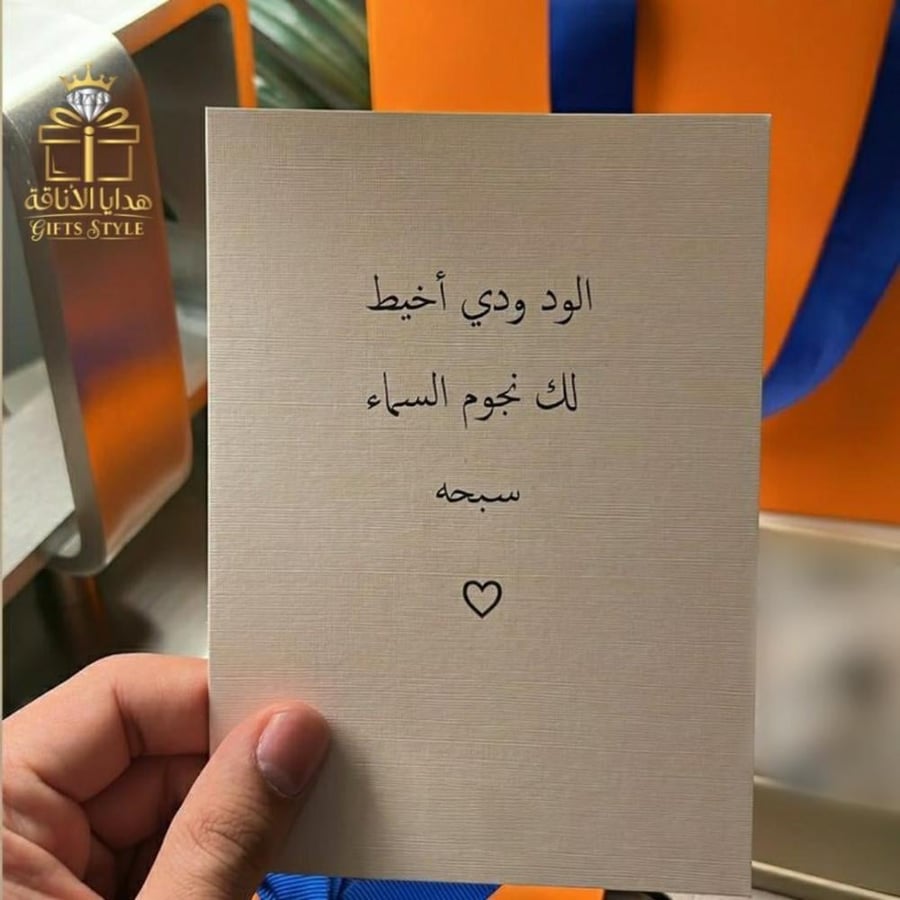 هدايا الأناقة
GIFTS STYLE
الود ودي أخيط
لك نجوم السماء
سبحه
♡